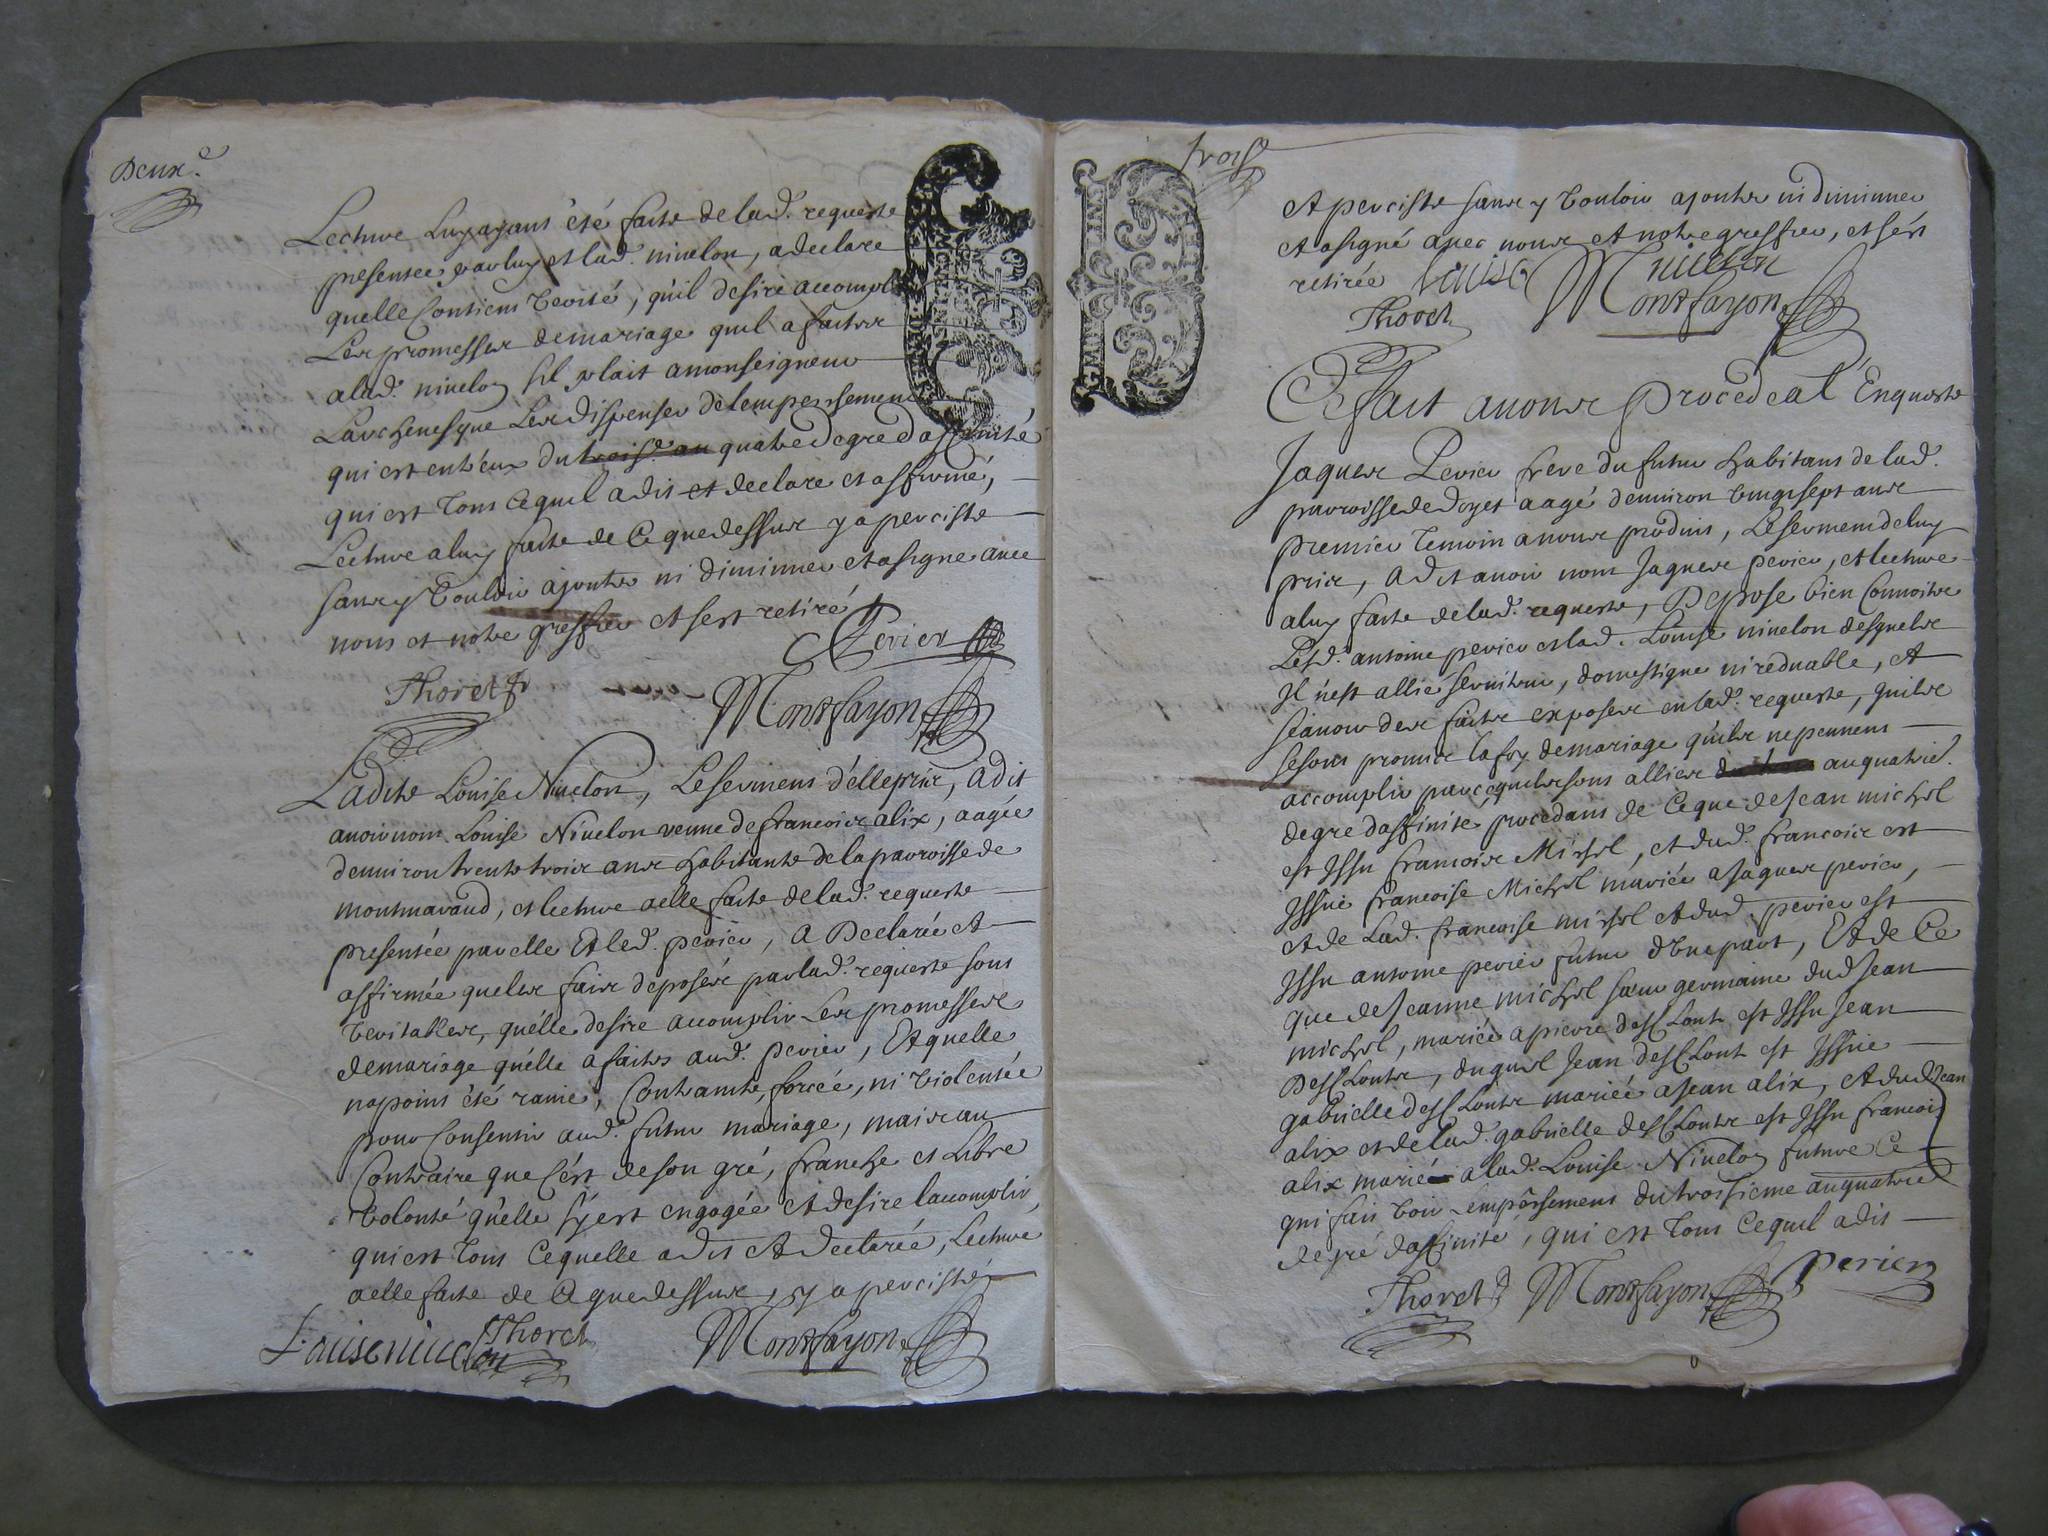 Deuxe.
Lecture luy ayant été faite de lad. requeste
presentée par luy et lad. nivelon, a declare
quelle contient verité, qu'il desire accomplir
Les promesses de mariage quil a faites
a lad. nivelon sil plait a monseigneur
Larchevesque Les dispenser de lempeschement
qui est ent'eux du troise. au quatre degre d'affinité
qui est tout ce quil a dit et declare et affirmé,
Lecture a luy faite de ce que dessus y a perciste
sans y vouloir ajouter ni diminuer et a signe avec
nous et notre greffier et sest retiré
Perier
Thoret Montfayon
Ladite Louise Nivelon, Le serment d'elle pris, a dit
avoir nom Louise Nivelon veuve de francois alix, aagée
denviron trente trois ans habitante de la parroisse de
montmaraud, et lecture a elle faite de lad. requeste
presentée par elle et led. perier, a Declarée et
affirmée que les fais deposés par lad. requeste sont
veritables, qu'elle desire accomplir Les promesses
de mariage qu'elle a faites aud. perier, Et quelle
na point été ravie, contrainte, forcée, ni violentée
pour consentir aud. futur mariage, mais au
contraire que c'est de son gré, franche et Libre
volonté qu'elle s'y est engagée et desire laccomplir,
qui est tout ce quelle a dit et declarée, Lecture
a elle faite de ce que dessus, y a percisté
Louise nivelon Thoret Montfayon
trois
et perciste sans y vouloir ajouter ni diminuer
et a signé avec nous et notre greffier, et s'est
retirée Louise nivelon
Thoret Montfayon
Ce fait avons procedé a L'Enqueste
Jaques Perier frere du futur habitant de lad.
parroisse de doyet aagé denviron vingt sept ans
premier temoin a nous produit, Le serment de luy
pris, a dit avoir nom Jaques perier, et lecture
a luy faite de lad. requeste, Depose bien connoitre
Lesd. antoine perier et lad. Louise nivelon desquels
Il n'est allié serviteur, domestique ni reduable, et
scavoir des faits exposés en lad. requeste, quils
se sont promis la foy de mariage quils ne peuvent
accomplir parcequils sont alliés au quatrie.
degre daffinité procedant de ce que de Jean michel
est Issu francois Michel, et dud. francois est
Issue francoise Michel mariée a Jaques perier,
et de Lad. francoise michel et dud. perier est
Issu antoine perier futur d'une part, Et de ce
que de Jeanne michel soeur germaine dud. Jean
michel, mariée a pierre desCloux est Issu Jean
DesCloux, duquel Jean desCloux est Issue
gabrielle desCloux mariée a Jean alix, et dud. Jean
alix et de lad. gabrielle desCloux est Issu francois
alix marié a lad. Louise Nivelon future ce
qui fait voir lempêchement du troisieme au quatrie.
degré daffinité, qui est tout ce quil a dit
Thoret Montfayon Perier